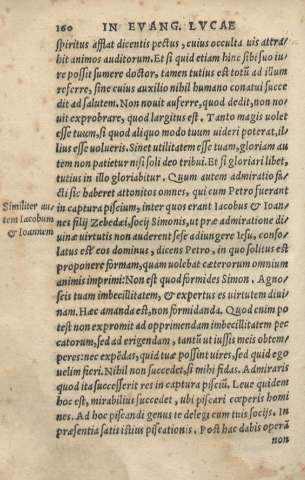 160 IN EVANG. LVCAE
spiritus afflat dicentis pectus, cuius occulta uis attra
hit animos auditorum. Et si quid etiam hinc sibi suo iu
re possit sumere doctor, tamen tutius est totũ ad illum
referre, sine cuius auxilio nihil humano conatui succe
dit ad salutem. Non nouit auferre, quod dedit, non no-
uit exprobrare, quod largitus est. Tanto magis uolet
esse tuum, si quod aliquo modo tuum uideri poterat, il-
lius esse uolueris. Sinet utilitatem esse tuam, gloriam au
tem non patietur nisi soli deo tribui. Et si gloriari libet,
tutius in illo gloriabitur. Quum autem admiratio fa-
cti sic haberet attonitos omnes, qui cum Petro fuerant
Similiter au-
tem Iacobum
& Ioannem
in captura pisciũ, inter quos erant Iacobus & Ioan
nes filij Zebedæi, socij Simonis, ut præ admiratione di
uinæ uirtutis non auderent sese adiungere Iesu, conso-
latus est eos dominus, dicens Petro, in quo solitus est
proponere formam, quam uolebat cæterorum omnium
animis imprimi: Non est quod formides Simon. Agno-
scis tuam imbecillitatem, & expertus es uirtutem diui-
nam. Hæc amanda est, non formidanda. Quod enim po
test non expromit ad opprimendam imbecillitatem pec
catorum, sed ad erigendam, tantũ ut iussis meis obtem-
peres: nec expẽdas, quid tuæ possint uires, sed quid ego
uelim fieri. Nihil non succedet, si mihi fidas. Admiraris
quod ita successerit res in captura pisciũ. Leue quidem
hoc est, mirabilius succedet, ubi piscari cœperis homi
nes. Ad hoc piscandi genus te delegi cum tuis socijs. In
præsentia satis istius piscationis. Post hac dabis operã
non